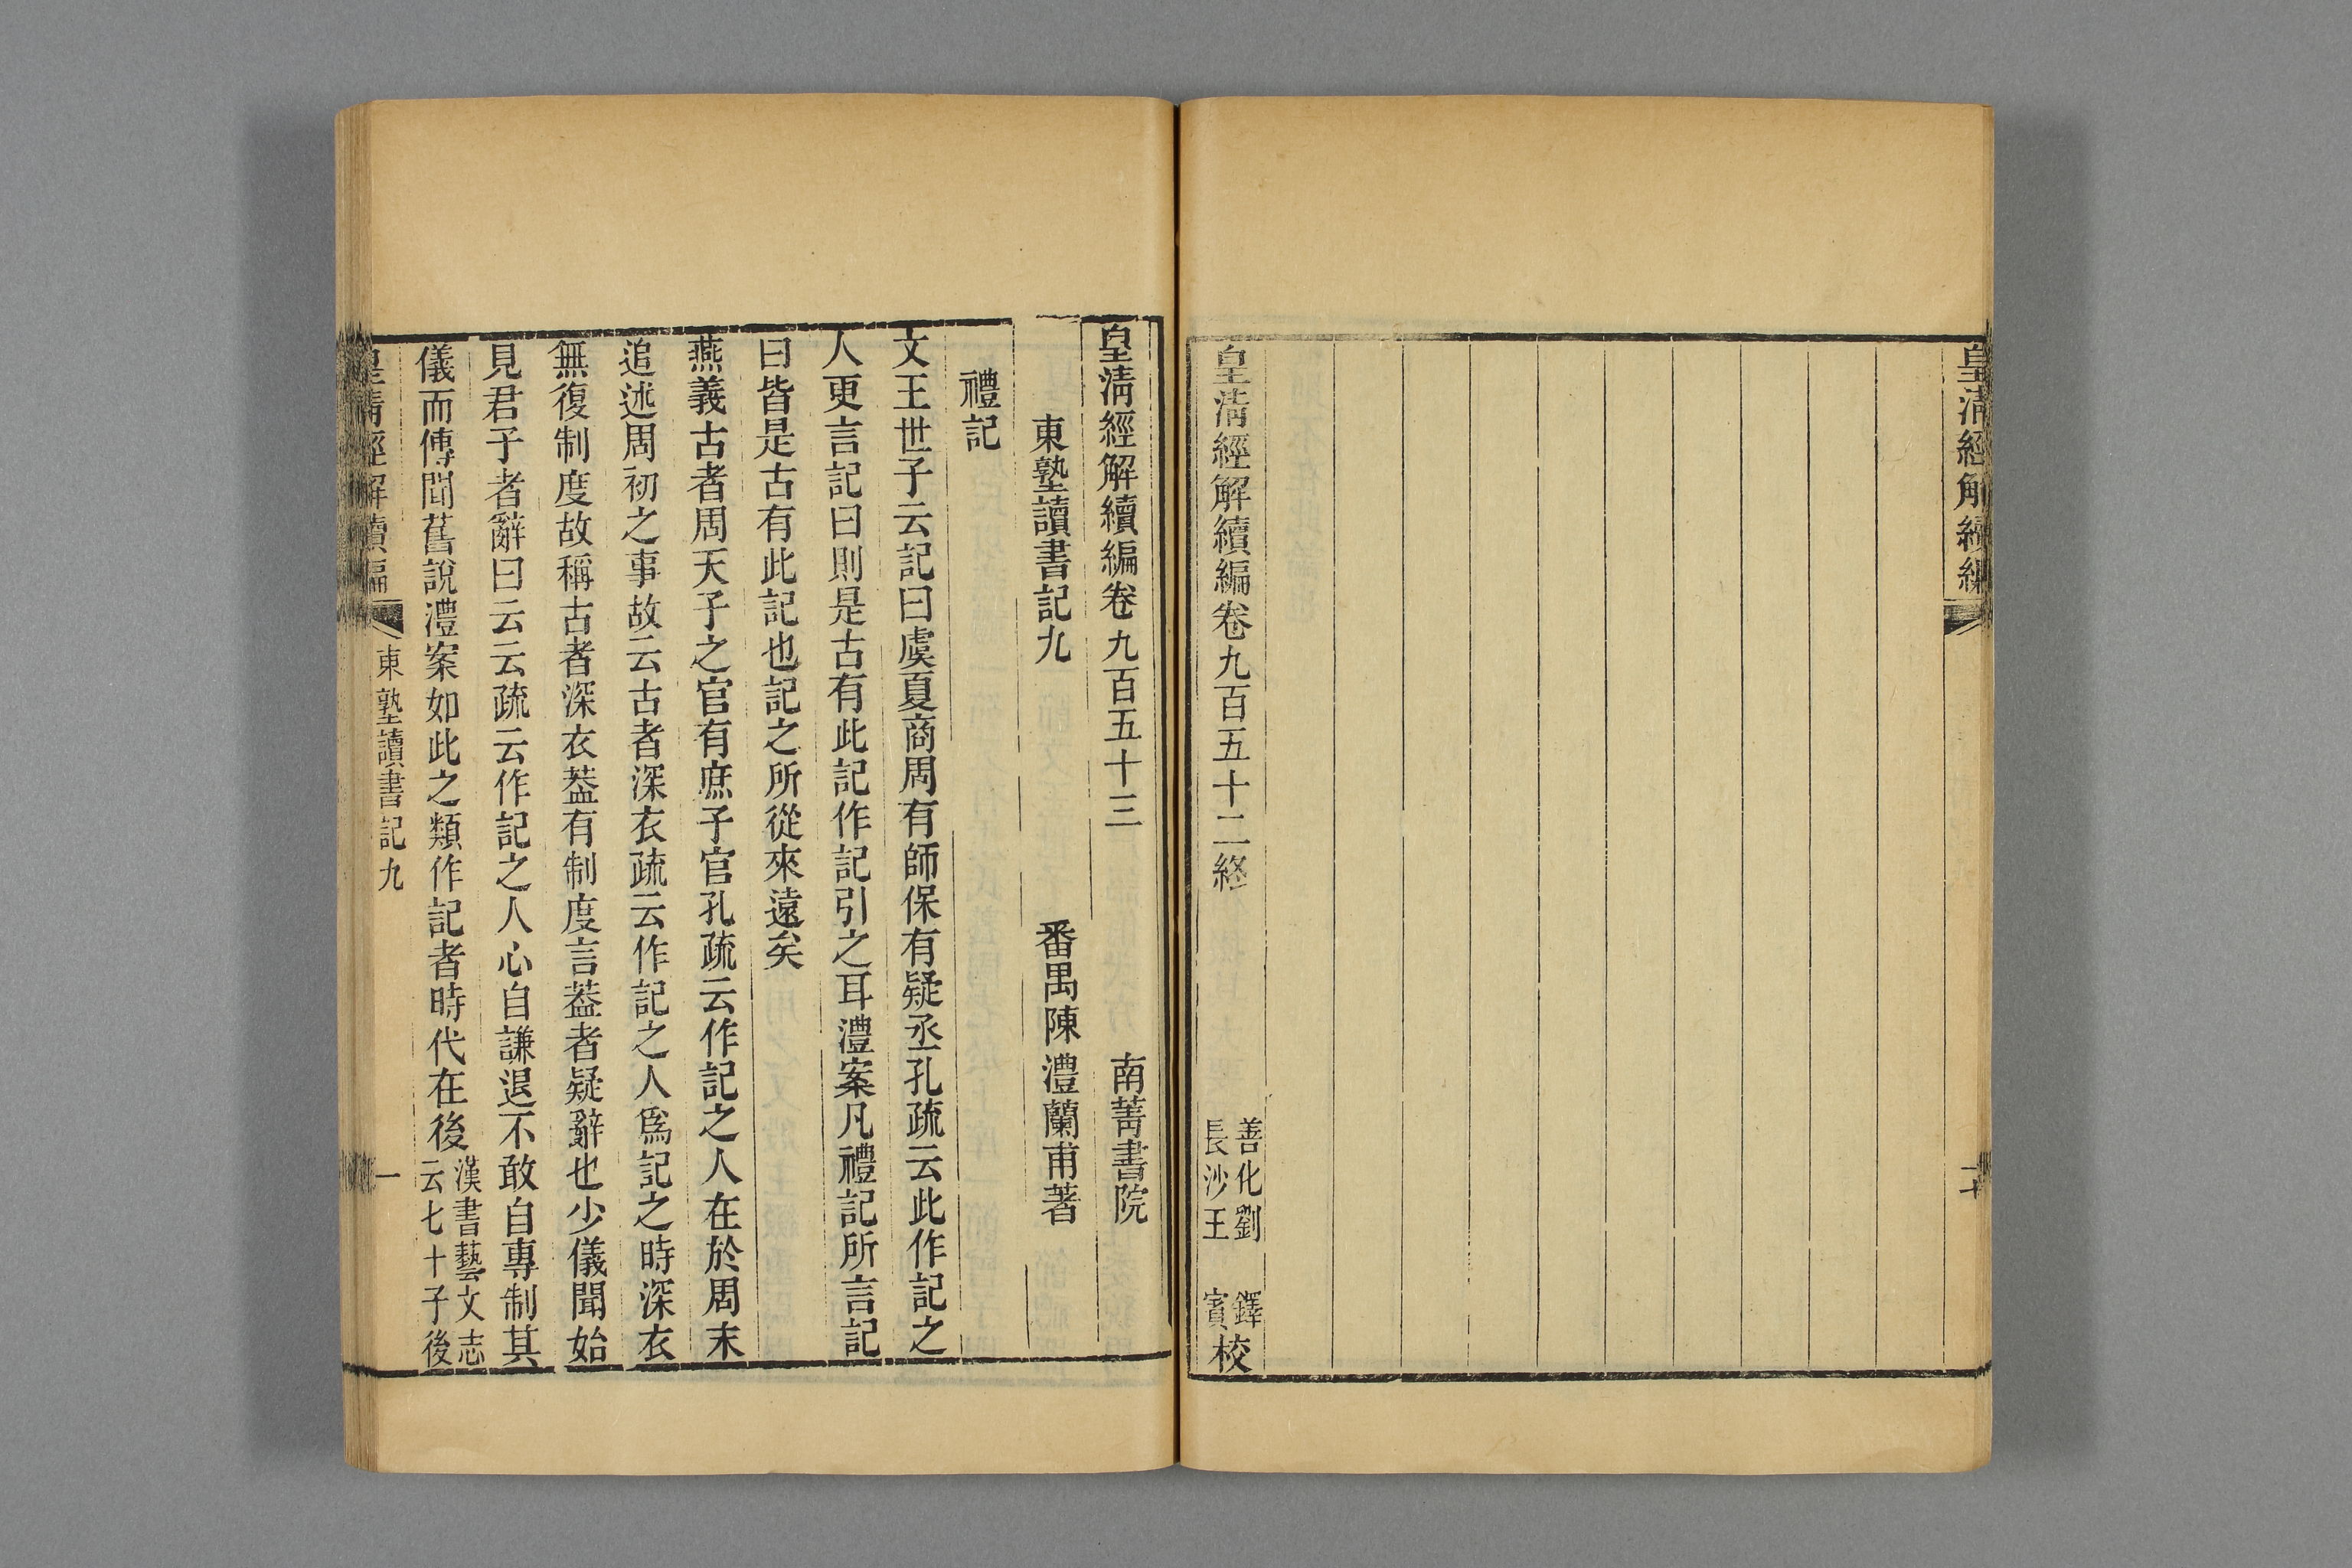 皇清經解續編
二十
皇清經解續編卷九百五十二終
善化劉鐸
長沙王賓校
皇清經解續編卷九百五十三
南菁書院
東塾讀書記九
番禺陳澧蘭甫著
禮記
文王世子云記曰虞夏商周有師保有疑丞孔疏云此作記之
人更言記曰則是古有此記作記引之耳澧案凡禮記所言記
曰皆是古有此記也記之所從來遠矣
燕義古者周天子之官有庶子官孔疏云作記之人在於周末
追述周初之事故云古者深衣疏云作記之人爲記之時深衣
無復制度故稱古者深衣葢有制度言葢者疑辭也少儀聞始
見君子者辭曰云云疏云作記之人心自謙退不敢自專制其
儀而傳聞舊說澧案如此之類作記者時代在後
漢書藝文志
云七十子後
皇清經解續編
東塾讀書記九
一